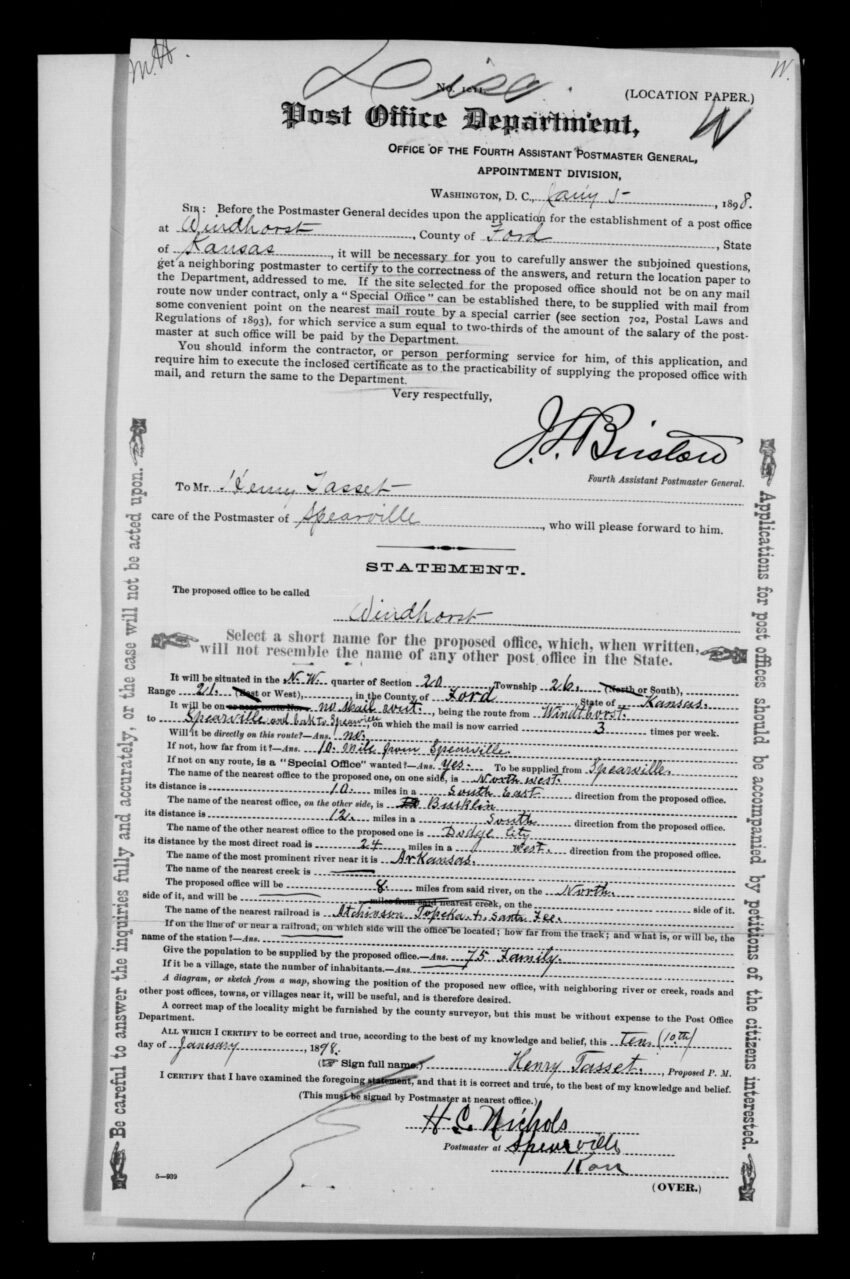 M.H.
W.
Disc.
(LOCATION PAPER.)
W
Post Office Department,
OFFICE OF THE FOURTH ASSISTANT POSTMASTER GENERAL,
APPOINTMENT DIVISION,
WASHINGTON, D. C., Jany 5, 1898.
SIR: Before the Postmaster General decides upon the application for the establishment of a post office
at Windhorst, County of Ford, State
of Kansas, it will be necessary for you to carefully answer the subjoined questions,
get a neighboring postmaster to certify to the correctness of the answers, and return the location paper to
the Department, addressed to me. If the site selected for the proposed office should not be on any mail
route now under contract, only a "Special Office" can be established there, to be supplied with mail from
some convenient point on the nearest mail route by a special carrier (see section 702, Postal Laws and
Regulations of 1893), for which service a sum equal to two-thirds of the amount of the salary of the post-
master at such office will be paid by the Department.
You should inform the contractor, or person performing service for him, of this application, and
require him to execute the inclosed certificate as to the practicability of supplying the proposed office with
mail, and return the same to the Department.
Very respectfully,
Fourth Assistant Postmaster General.
To Mr. Henry Tasset
care of the Postmaster of Spearville, who will please forward to him.
STATEMENT.
The proposed office to be called
Windhorst
Select a short name for the proposed office, which, when written,
will not resemble the name of any other post office in the State.
It will be situated in the N.W. quarter of Section 20 Township 26. (North or South),
Range 21. (East or West), in the County of Ford State of Kansas.
It will be on no Mail rout., being the route from Windthorst.
to Spearville and bak to Spearville, on which the mail is now carried 3 times per week.
Will it be directly on this route?—Ans. no.
If not, how far from it?—Ans. 10. Mile from Spearville
If not on any route, is a "Special Office" wanted?—Ans. Yes. To be supplied from Spearville.
The name of the nearest office to the proposed one, on one side, is North west.
its distance is 10. miles in a South East direction from the proposed office.
The name of the nearest office, on the other side, is Bucklin
its distance is 12. miles in a South direction from the proposed office.
The name of the other nearest office to the proposed one is Dodge City
its distance by the most direct road is 24 miles in a west. direction from the proposed office.
The name of the most prominent river near it is Arkansas.
The name of the nearest creek is
The proposed office will be 8. miles from said river, on the North.
side of it, and will be miles from said nearest creek, on the side of it.
The name of the nearest railroad is Atchinson Topeka + Santa Fee.
If on the line of or near a railroad, on which side will the office be located; how far from the track; and what is, or will be, the
name of the station?—Ans.
Give the population to be supplied by the proposed office.—Ans. 75 Family.
If it be a village, state the number of inhabitants.—Ans.
A diagram, or sketch from a map, showing the position of the proposed new office, with neighboring river or creek, roads and
other post offices, towns, or villages near it, will be useful, and is therefore desired.
A correct map of the locality might be furnished by the county surveyor, but this must be without expense to the Post Office
Department.
ALL WHICH I CERTIFY to be correct and true, according to the best of my knowledge and belief, this Ten (10th)
day of January, 1898.
(☞ Sign full name.) Henry Tasset., Proposed P. M.
I CERTIFY that I have examined the foregoing statement, and that it is correct and true, to the best of my knowledge and belief.
(This must be signed by Postmaster at nearest office.)
H C Nichols
Postmaster at Spearville
Kan
5—939
(OVER.)
Be careful to answer the inquiries fully and accurately, or the case will not be acted upon.
Applications for post offices should be accompanied by petitions of the citizens interested.